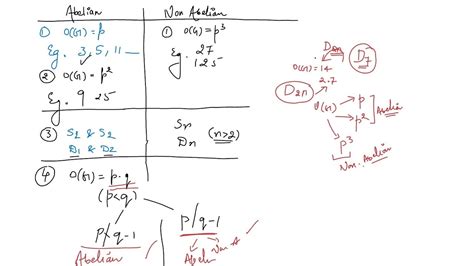 Abelian
Non Abelian
① O(G) = p
① O(G) = p³
Eg. 3, 5, 11 —
Eg. 27
125
② O(G) = p²
Eg. 9 25
③ S₁ & S₂
D₁ & D₂
Sn
Dn (n>2)
④ O(G) = p.q
(p<q)
p∤q-1
p/q-1
Abelian
Abelian
Non A
D₇
O(G) = 14
2.7
D₂n
O(G) → p
→ p²
Abelian
p³
Non-Abelian